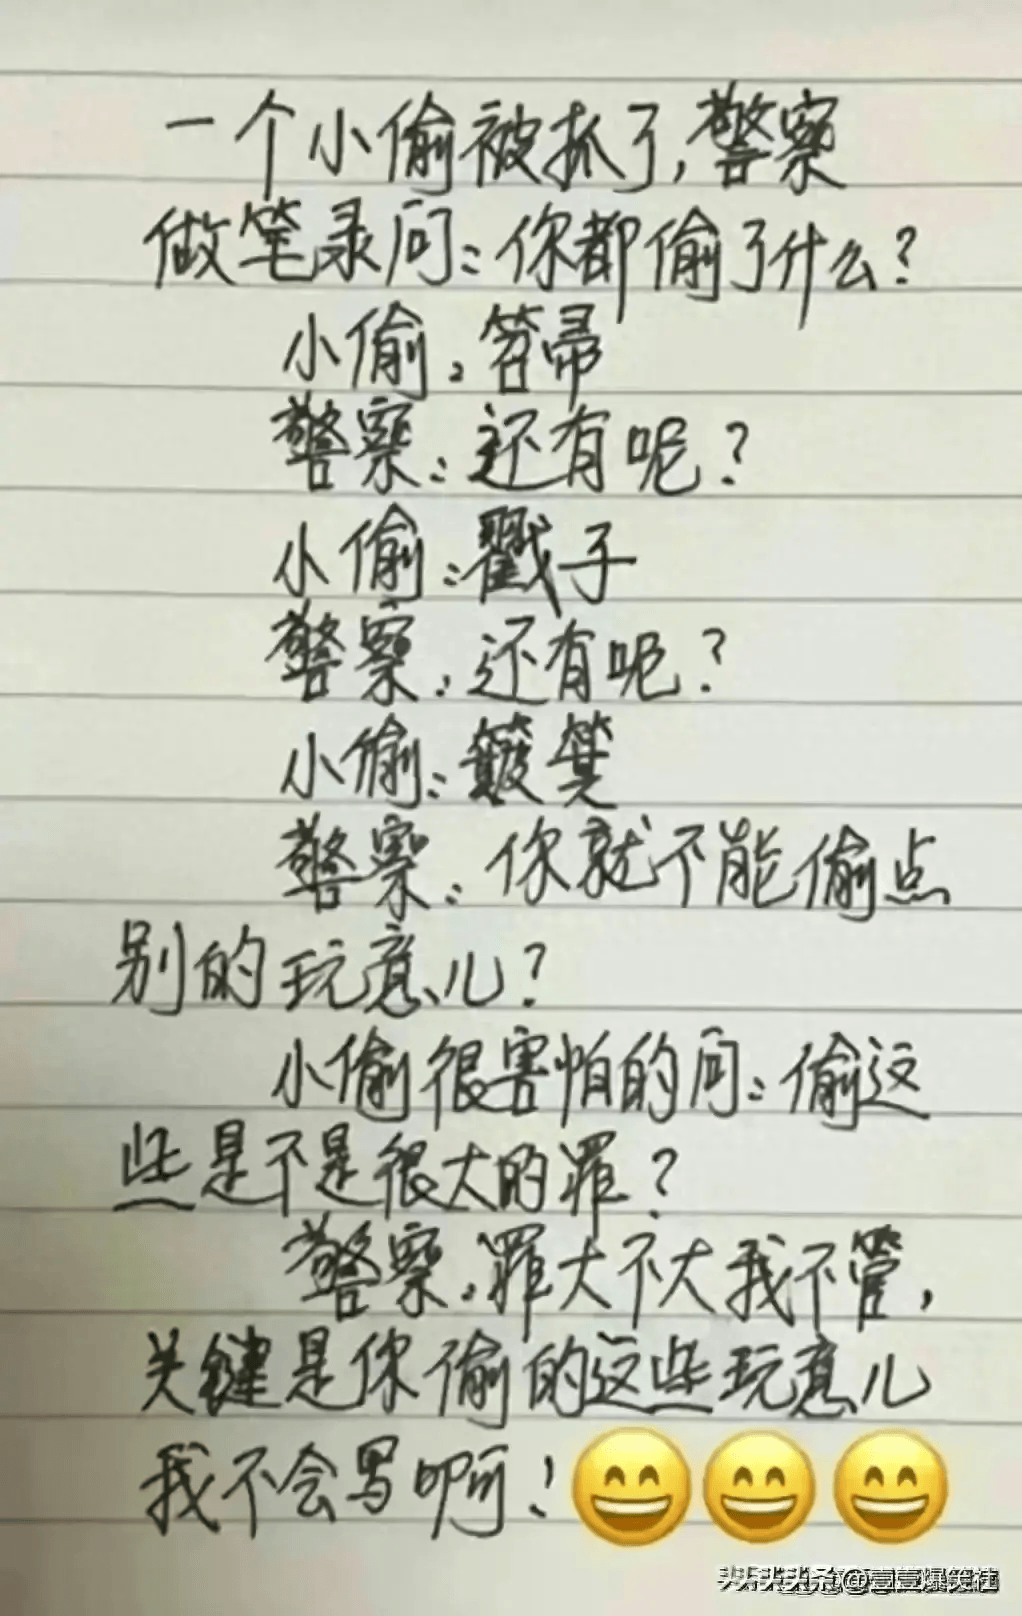 一个小偷被抓了,警察
做笔录问:你都偷了什么?
小偷:笤帚
警察:还有呢?
小偷:戳子
警察:还有呢?
小偷:簸箕
警察:你就不能偷点
别的玩意儿?
小偷很害怕的问:偷这
些是不是很大的罪?
警察:罪大不大我不管,
关键是你偷的这些玩意儿
我不会写啊!😄😄😄
头条@壹壹爆笑社